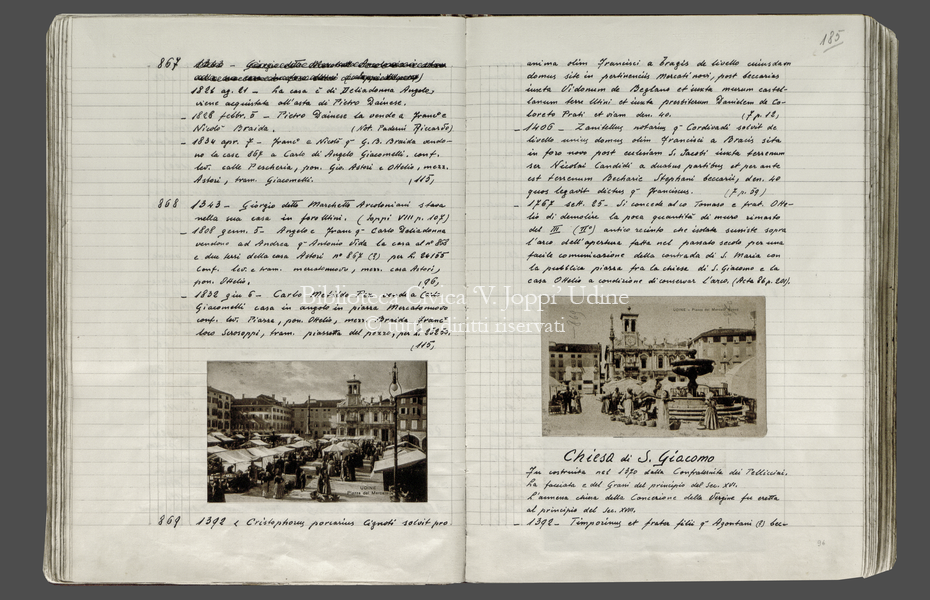 867 1343 - Giorgio detto Marchetto Arcoloniani stava
nella sua casa in foro Utini (Joppi VIII p. 107)
1826 ag. 21 - La casa è di Deliadonna Angelo,
viene acquistata all'asta di Pietro Dainese.
- 1828 febbr. 5 - Pietro Dainese la vende a Franc° e
Nicolò Braida. (Not. Paderni Riccardo)
- 1834 apr. 7 - Franc° e Nicolò q^m G. B. Braida vendo-
no la casa 867 a Carlo di Angelo Giacomelli. conf.
lev. calle Pescheria, pon. Gio. Astori e Ottelio, mezz.
Astori, tram. Giacomelli. (115)
868 1343 - Giorgio detto Marchetto Arcoloniani stava
nella sua casa in foro Utini. (Joppi VIII p. 107)
- 1808 genn. 5 - Angelo e Franc q^m Carlo Deliadonna
vendono ad Andrea q^m Antonio Vida la casa al n° 868
e due terzi della casa Astori n° 867 (?) per L. 24155
conf. lev. e tram. mercatonuovo, mezz. casa Astori,
pon. Ottelio. (96)
- 1832 giu 6 - Carlo
Giacomelli casa in angolo in piazza Mercatonuovo
conf. lev. Piazza, pon. Ottelio, mezz. Braida Franc°
loco Scrosoppi, tram. piazzetta del pozzo, per L.
(115)
UDINE
Piazza del Mercato
869 1392 - Cristophorus porcarius Cignoti solvit pro
185
anima olim Francisci a Bragis de livello cuiusdam
domus site in pertinenciis Mercati novi, post beccarias
iuxta Vidonum de Beglano et iuxta murum castel-
lanum terre Utini et iuxta presbiterum Danielem de Ca-
loreto Prati et viam den. 40. (7 p. 12)
- 1406 - Zanitellus notarius q^m Cordivadi solvit de
livello unius domus olim Francisci a Bracis sita
in foro novo post ecclesiam S. Jacobi iuxta terrenum
ser Nicolai Candidi a duabus partibus et per ante
est terrenum Becharie Stephani beccarii, den. 40
quos legavit dictus q^m Franciscus. (7 p. 59)
- 1767 sett. 25 - Si concede al co Tomaso e frat. Otte-
lio di demolire la poca quantità di muro rimasto
del III (II°) antico recinto che isolata sussiste sopra
l'arco dell'apertura fatta nel passato secolo per una
facile comunicazione della contrada di S. Maria con
la pubblica piazza fra la chiesa di S. Giacomo e la
casa Ottelio a condizione di conservar l'arco. (Acta 86 p. 201).
UDINE - Piazza del Mercato Nuovo
Chiesa di S. Giacomo
Fu costruita nel 1370 dalla Confraternita dei Pellicciai.
La facciata è del Grani del principio del sec. XVI.
L'annessa chiesa della Concezione della Vergine fu eretta
al principio del sec. XVIII.
- 1392 - Timporinus et frater filii q^m Agontani (?) bec-
Biblioteca Civica 'V. Joppi' Udine
© tutti i diritti riservati